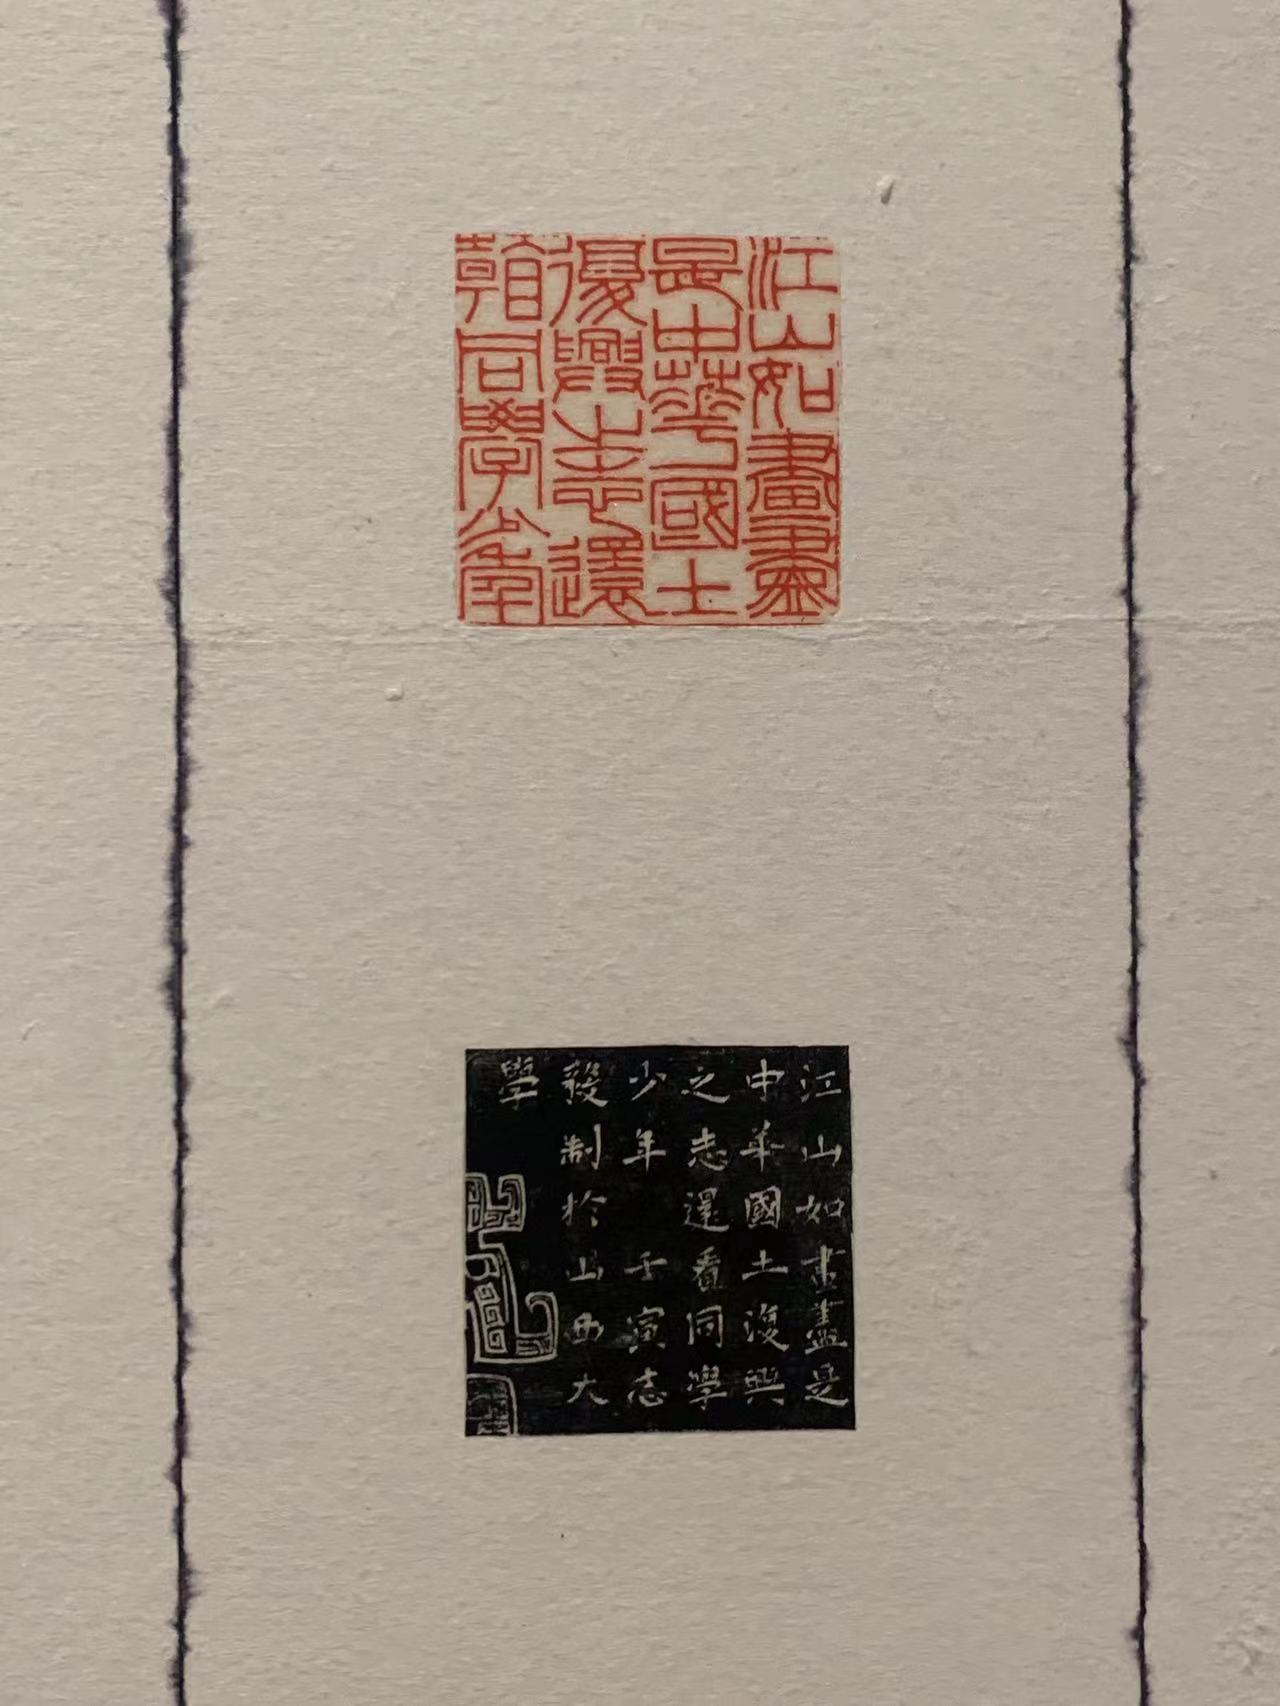 江山如畫盡
是中華國土
復興之志還
看同學少年
江山如畫盡是
中華國土復興
之志還看同學
少年 壬寅志
毅制於山西大
學